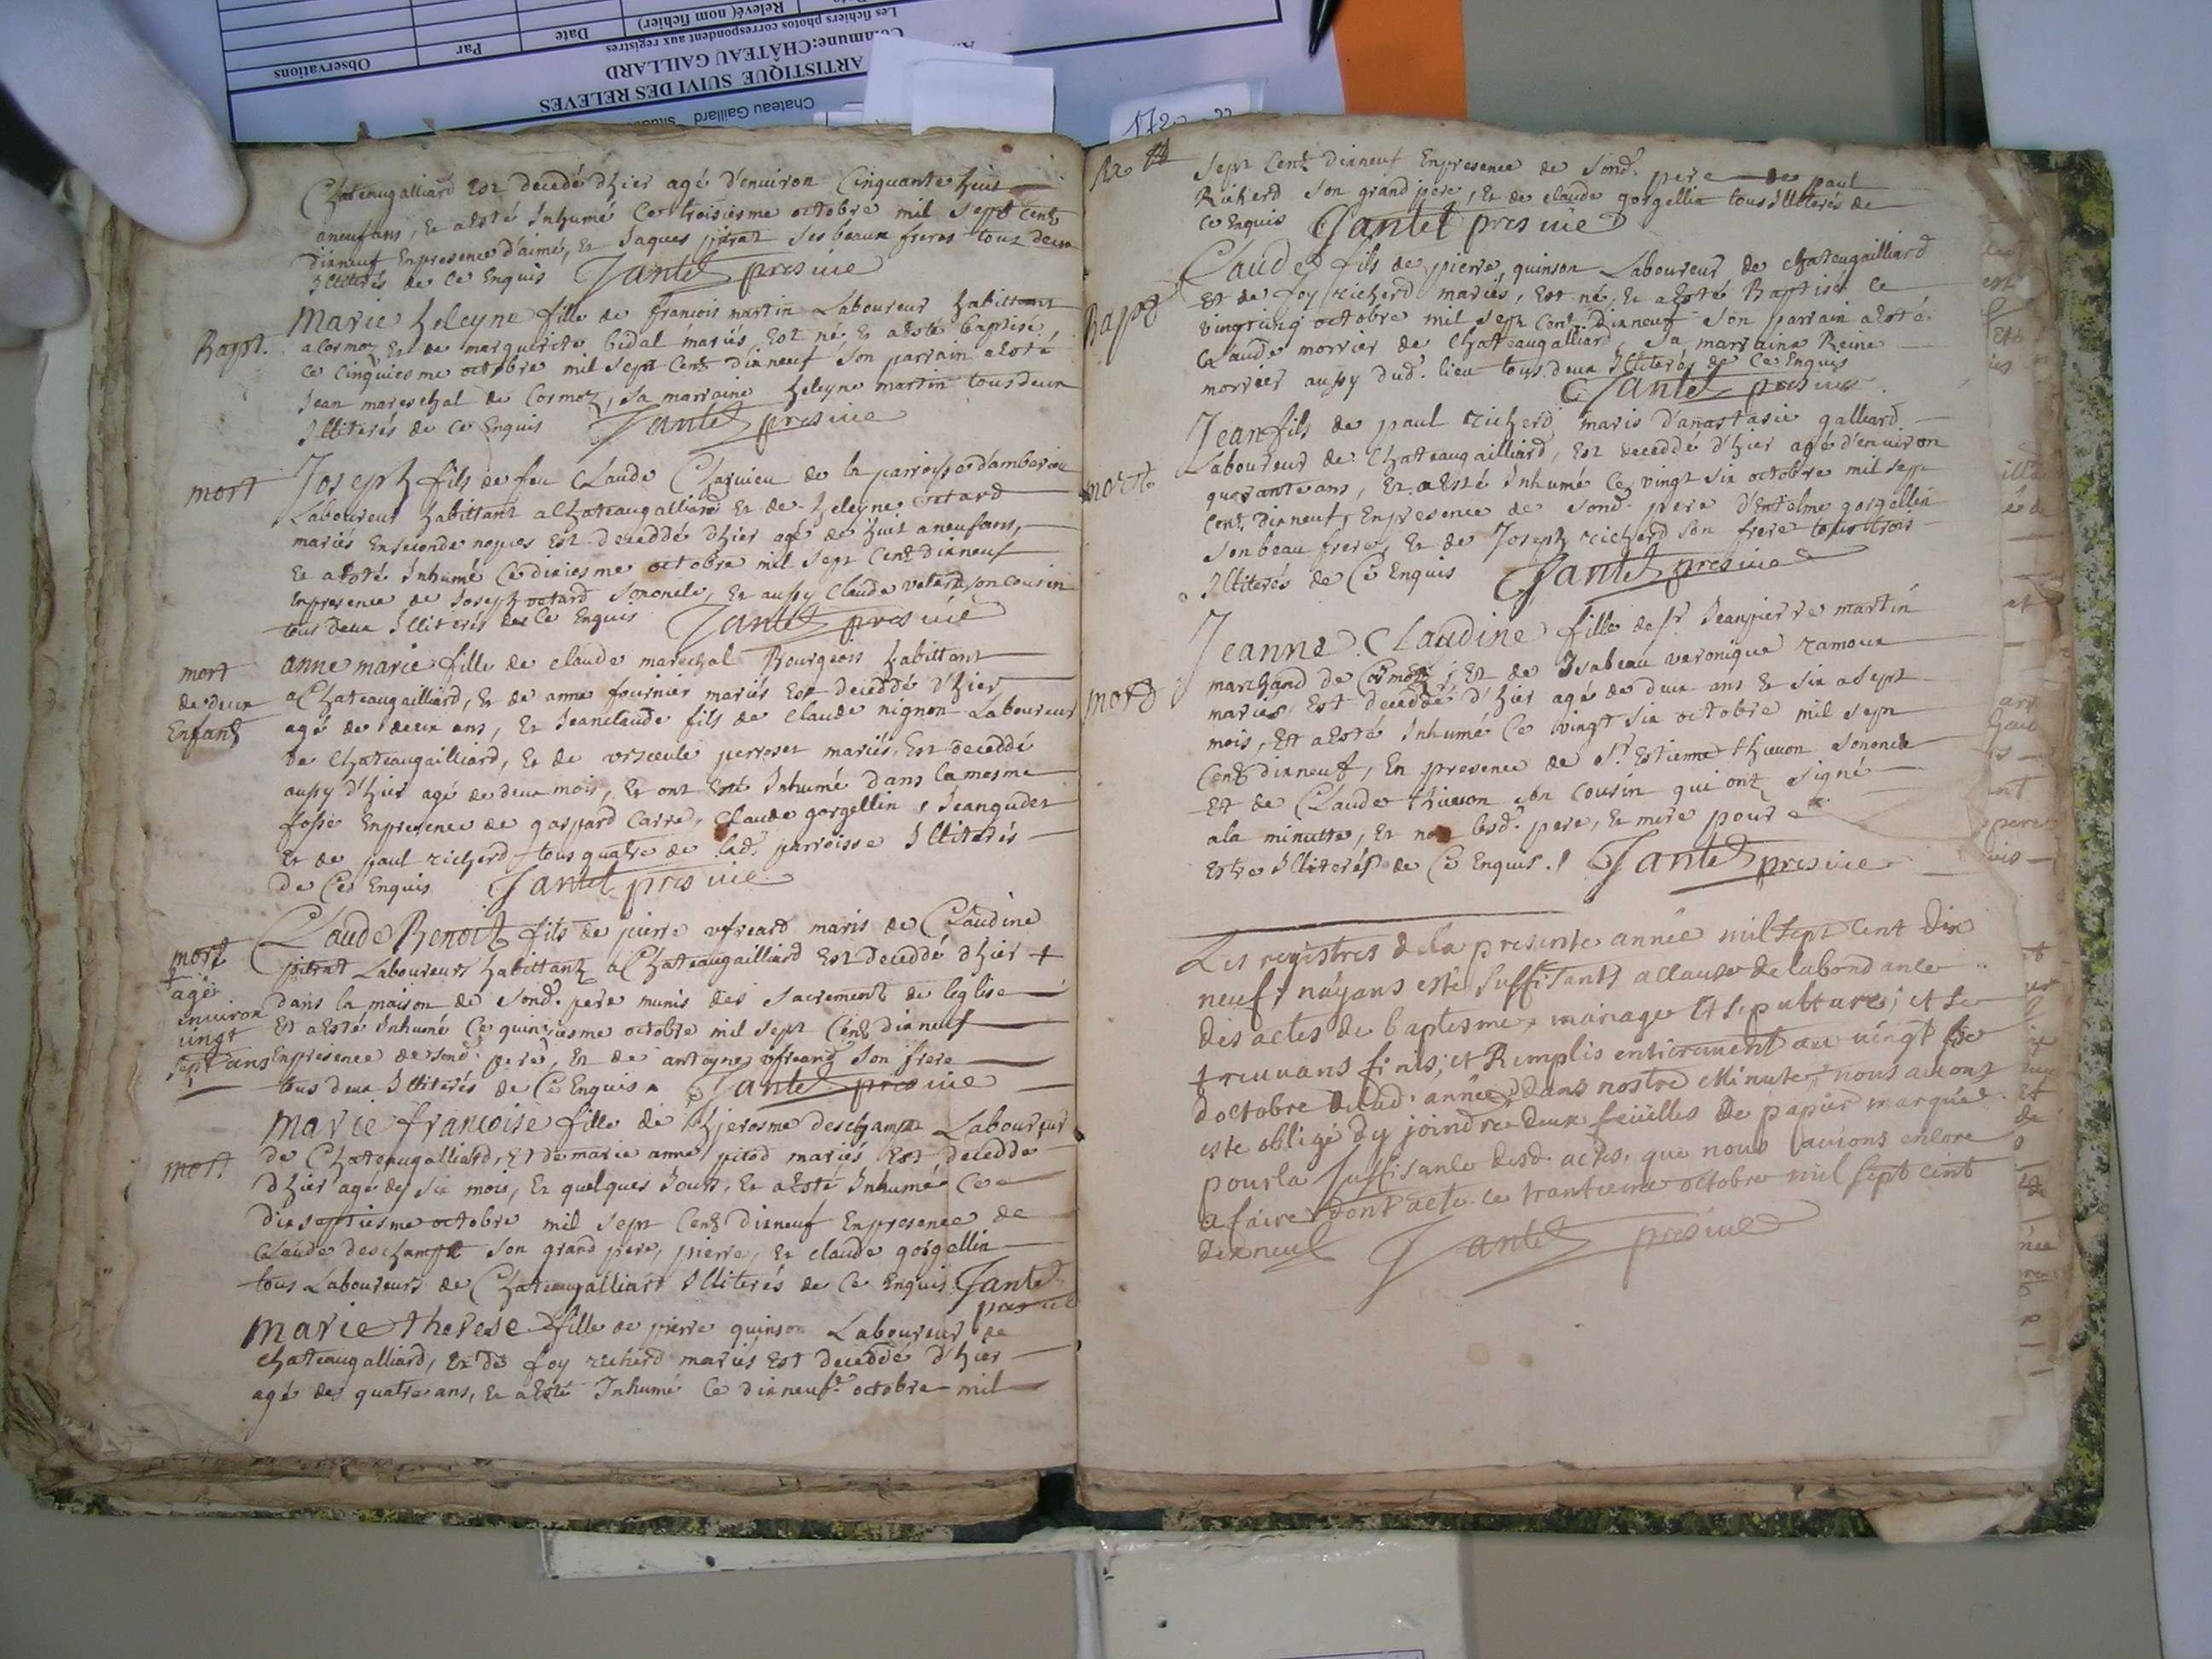 Observations
Par
Date
Relevé (nom fichier)
Les fichiers photos correspondent aux registres
Commune:CHÂTEAU GAILLARD
ARTISTIQUE SUIVI DES RELEVES
Chateau Gaillard
Chateaugalliard Est decedé dhier agé d'enuiron Cinquante huit
aneufans, Et aEsté Inhumé Ce troisiesme octobre mil sept cent
dixneuf Enpresence d'aimé, Et Jaques pitrat Ses beaux freres tous deux
Illiterés de Ce Enquis Jantet presvice
Bapt.
Marie heleyne fille de francois martin Laboureur habittant
a Cormoz Et de marguerite bidal mariés Est né Et aEsté baptisé,
ce Cinquiesme octobre mil sept Cent dixneuf Son parrain aEsté
Jean mareschal de Cormoz, Sa marraine heleyne martin tous deux
Illiterés de Ce Enquis Jantet presvice
mort
Joseph fils de feu Claude Charvieu de la parroisse d'amberieu
Laboureur habittant a Chateaugalliard Et de heleyne octard
mariés Enseconde nopces Est deceddé dhier agé de huit a neufans,
Et aEsté Inhumé Ce dixiesme octobre mil sept Cent dixneuf
Enpresence de Joseph octard Sononcle, Et aussy Claude soncousin
tous deux Illiterés de Ce Enquis Jantet presvice
mort
de deux
Enfant
anne marie fille de claude marechal Bourgeois habittant
a Chateaugailliard, Et de anne fournier mariés Est deceddé d'hier
agé de deux ans, Et Jeanclaude fils de claude nignon Laboureur
de Chateaugailliard, Et de vrsceule perroset mariés, Est deceddé
aussy d'hier agé de deux mois, Et ont Esté Inhumé dans la mesme
fosse Enpresence de gaspard Carre, Claude gorgellin, Jean
Et de paul richerd tous quatre de lad. parroisse Illiterés
de Ce Enquis Jantet presvice
mort
+
agér
enuiron
uingt
sept ans
Claude Benoit fils de pierre maris de Claudine
pitrat Laboureur habittant a Chateaugailliard Est deceddé dhier +
dans la maison de sond. pere munis des Sacrement de leglise
Et aEsté Inhumé Ce quinziesme octobre mil sept Cent dixneuf
Enpresence de sond. pere, Et de antoyne Son frere
tous deux Illiterés de Ce Enquis Jantet presvice
mort
Marie francoise fille de hjerosme deschamp Laboureur
de Chateaugalliard, Et de marie anne pitod mariés Est decedde
dhier agé de six mois, Et quelques Jours, Et aEsté Inhumé Ce
dixseptiesme octobre mil sept Cent dixneuf Enpresence de
Claude deschamp Son grand pere, pierre, Et claude gorgellin
tous Laboureurs de Chateaugalliard Illiterés de Ce Enquis Jantet
presvice
Marie therese fille de pierre quinson Laboureur de
chateaugalliard, Et de foy richerd mariés Est deceddé d'hier
agé de quatre ans, Et aEsté Inhumé Ce dixneuf octobre mil
sept Cent dixneuf Enpresence de Sond. pere de paul
Richerd Son grand pere, Et de claude gorgellin tous Illiterés de
Ce Enquis Jantet presvice
Bapt
Claude fils de pierre quinson Laboureur de chateaugailliard
Et de foy richerd mariés, Est né, Et aEsté Baptisé Ce
vingtung octobre mil sept Cent dixneuf Son parrain aEsté
Claude morrier de Chateaugalliard, Sa marraine Reine
morrier aussy dud. lieu tous deux Illiterés de Ce Enquis
Jantet presvice
mort
Jean fils de paul richerd maris d'anastasie galliard
Laboureur de Chateaugailliard, Est deceddé d'hier agé d'enuiron
quarante ans, Et aEsté Inhumé Ce vingt six octobre mil sept
Cent dixneuf, Enpresence de Sond. pere d'Entelme gorgellin
Son beau frere, Et de Joseph richerd Son frere tous trois
Illiterés de Ce Enquis Jantet presvice
mord
Jeanne Claudine fille de Sr Jeanpierre martin
marchand de Cormoz, Et de Isabeau veronique ramoux
mariés, Est deceddé d'hier agé de deux ans Et six a Sept
mois, Et aEsté Inhumé Ce vingt six octobre mil sept
Cent dixneuf, En presence de Sr Estienne thieuon Sononcle
Et de Claude thieuon Son Cousin qui ont Signé
ala minutte, Et non lesd. pere, Et mere pour
Estre Illiterés de Ce Enquis. Jantet presvice
Les registres de la presente année mil sept cent dix
neuf, nayans esté Suffisants a Cause de labondance
des actes de baptesme, mariage Et Sepultture; et se
treuuans finis, et Remplis entierement au vingt six
doctobre de lad. année dans nostre Minute, nous auons
este obligé dy joindre deux feüilles de papier marquée
pour la Suffisance desd. actes, que nous auions encore
a faire, dont acte. ce trantieme octobre mil sept cent
dixneuf Jantet presvice